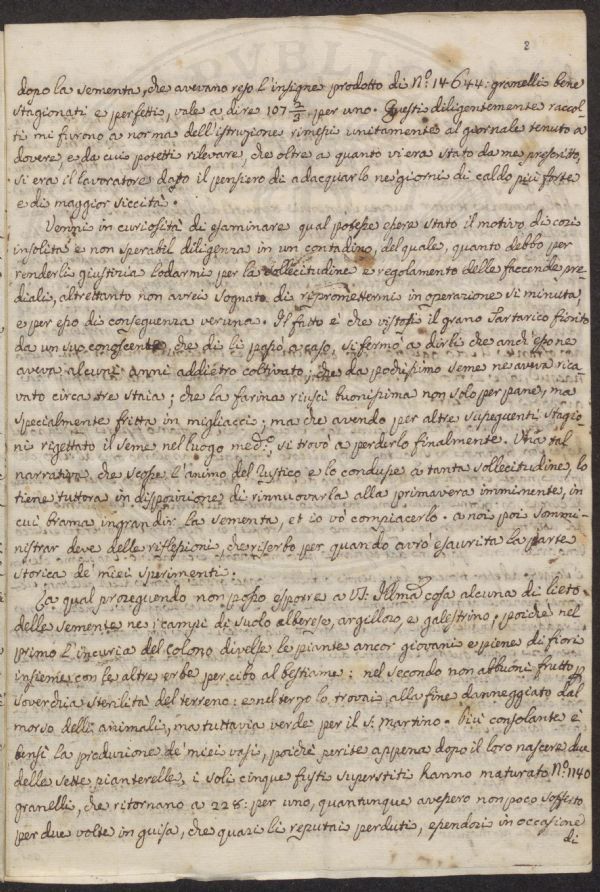 2
dopo la sementa, che avevano reso l'insigne prodotto di N.º 14644: granelli bene
stagionati e perfetti, vale a dire 107 2/3 per uno. Questi diligentemente raccol-
ti mi furono a norma dell'istruzione rimessi unitamente al giornale tenuto a
dovere, e da cui potetti rilevare, che oltre a quanto vi era stato da me prescritto,
si era il lavoratore dato il pensiero di adacquarlo ne' giorni di caldo più forte
e di maggior siccità.
Venni in curiosità di esaminare qual potesse essere stato il motivo di così
insolita e non sperabil diligenza in un contadino, del quale, quanto debbo per
renderli giustizia lodarmi per la sollecitudine e regolamento delle faccende pre-
diali, altrettanto non avrei sognato di ripromettermi in operazione sì minuta,
e per esso di conseguenza veruna. Il fatto è che vistosi il grano Tartarico fiorito
da un suo conoscente, che di lì passò a caso, si fermò a dirli che anch'esso ne
aveva alcuni anni addietro coltivato; che da pochissimo seme ne aveva rica
vato circa tre staia; che la farina riuscì buonissima non solo per pane, ma
specialmente fritta in migliacci; ma che avendo per altre susseguenti stagio-
ni rigettato il seme nel luogo med.º, si trovò a perderlo finalmente. Una tal
narrativa che scosse l'animo del rustico e lo condusse a tanta sollecitudine, lo
tiene tuttora in disposizione di rinnuovarla alla primavera imminente, in
cui brama ingrandir la sementa, et io vò compiacerlo. a noi poi sommi-
nistrar deve delle riflessioni, che riserbo per quando avrò esaurita la parte
storica de' miei sperimenti.
La qual proseguendo non posso esporre a VS. Illma cosa alcuna di lieto
delle semente ne' campi di suolo alberese, argilloso, e galestrino; poichè nel
primo l'incuria del Colono divelse le piante ancor giovani e piene di fiori
insieme con le altre erbe per cibo al bestiame: nel secondo non abbuonì frutto p
soverchia sterilità del terreno: e nel terzo lo trovai alla fine danneggiato dal
morso delli animali, ma tuttavia verde per il S. Martino. Più consolante è
bensì la produzione de' miei vasi, poichè perite appena dopo il loro nascere due
delle sette pianterelle, i soli cinque fusti superstiti hanno maturato N.º 1140
granelli, che ritornano a 228: per uno, quantunque avessero non poco sofferto
per due volte in guisa, che quasi li reputai perduti, essendosi in occasione
di